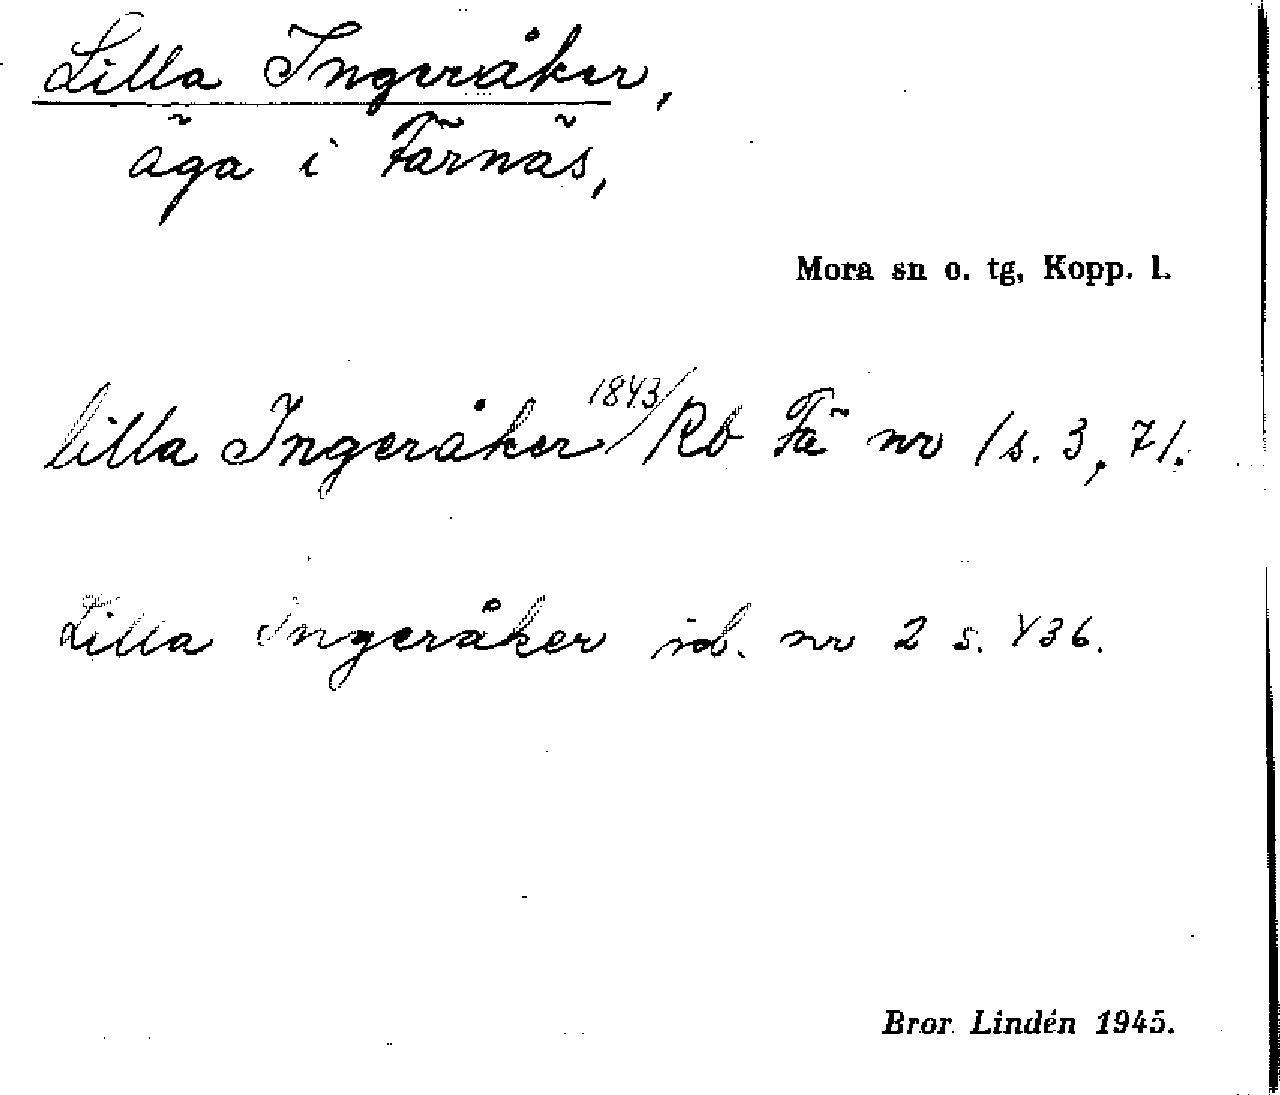 Lilla Ingeråker,
äga i Färnäs,
Mora sn o. tg, Kopp. l.
lilla Ingeråker 1843/Rb Fä nr 1 s. 3, 71.
Lilla Ingeråker ib. nr 2 s. 436.
Bror Lindén 1945.